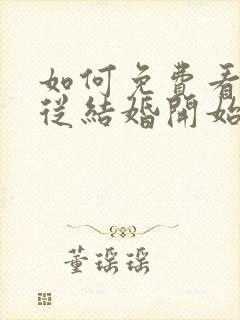 如何免費看
從結婚開始
董瑶瑶